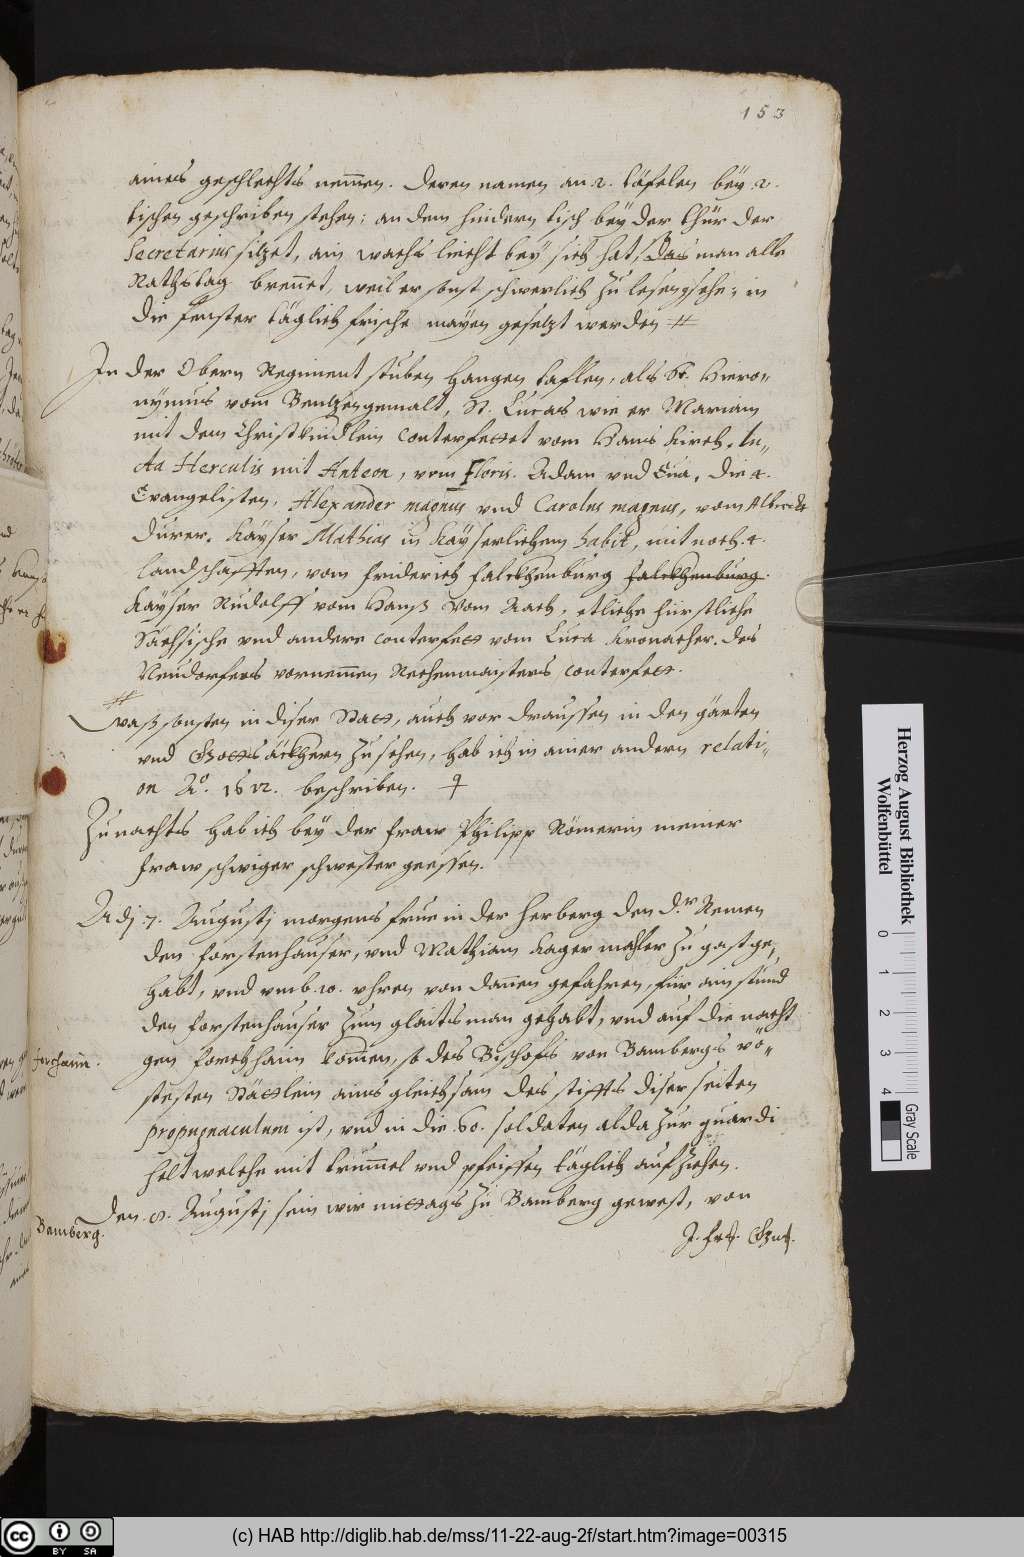 153
aines geschlechts nemmen. deren namen an 2. täfelen bey 2.
tischen geschriben stehen: an dem hindern tisch bey der thür der
Secretarius sitzet, ain wachs liecht bey sich hat, das man alle
Rathstag brennet, weil er sonst schwerlich zu lesen sehe; in
die fenster täglich frische mayen gesetzt werden #
In der Obern Regiment stuben hangen taflen, als St. Hiero-
nymus vom Bentzen gemalt, St. Lucas wie er Mariam
mit dem Christkindlein conterfettet vom Hans
Herculis mit Anteon, vom Floris. Adam vnd Eua, die 4.
Evangelisten, Alexander magnus vnd Carolus magnus, vom Albrecht
Durer. Kayser Mathias in Kayserlichem habit, mit noch 4.
landschafften, vom friderich falckhenburg falckhenburg.
Kayser Rudolff vom Hanß Vom Aach, etliche fürstliche
Sächsische vnd andere conterfett vom Luca Kronacher. des
Neudorfers vornemmen Rechenmaisters conterfett.
# waß sonsten in diser Statt, auch vor draussen in den gärten
vnd Gottsäckhern zu sehen, hab ich in ainer andern relati-
on Aº. 1612. beschriben.
Zu nachts hab ich bey der fraw Philipp Römerin meiner
fraw schwiger schwester geessen.
Adj .7. Augustj morgens frue in der herberg den d.r Remen
den forstenhauser, vnd Mathiam Kager mahler zu gast ge-
habt, vnd vmb 10. vhren von dannen gefahren, für ain stund
den forstenhauser zum glaitsman gehabt, vnd auf die nacht
forchaim.
gen forchhaim kommen, so des Bischofs von Bambergs vö-
stesten Stättlein aines gleichsam des stiffts diser seiten
propugnaculum ist, vnd in die .60. soldaten alda zur guardi
helt welche mit trummel vnd pfeiffen täglich aufziehen.
Bamberg.
den .8. Augustj sein wir mittags zu Bamberg gewest, von
J. frs. Gn.
Herzog August Bibliothek
Wolfenbüttel
0 1 2 3 4
Gray Scale
cc BY SA
(c) HAB http://diglib.hab.de/mss/11-22-aug-2f/start.htm?image=00315